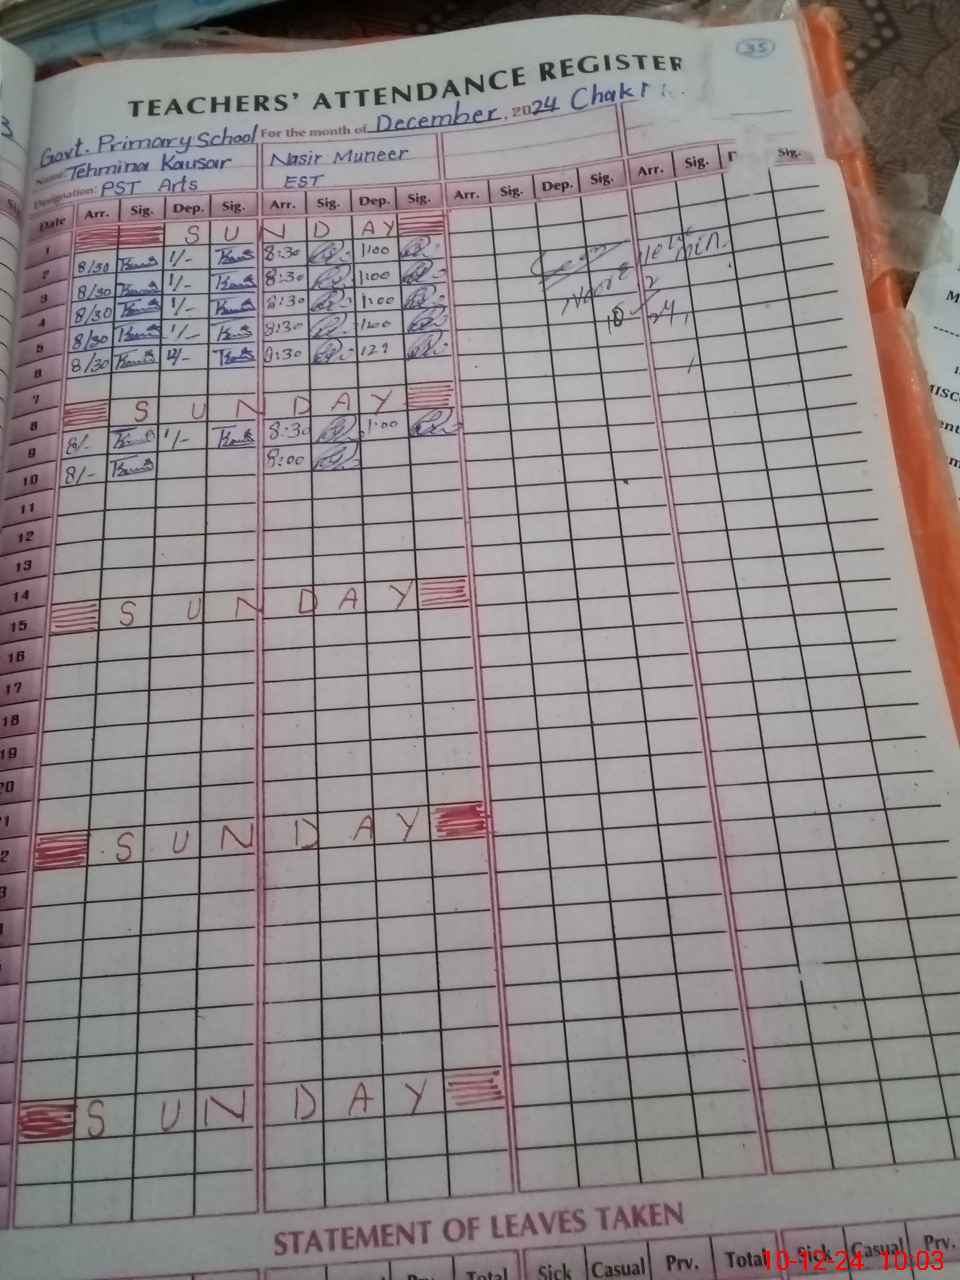 35
TEACHERS' ATTENDANCE REGISTER
Govt. Primary School For the month of December, 2024
Name: Tehmina Kausar Nasir Muneer
Designation: PST Arts EST
Date Arr. Sig. Dep. Sig. Arr. Sig. Dep. Sig. Arr. Sig. Dep. Sig. Arr. Sig. Sig.
1 SUNDAY
2 8/30 1/- 8:30 1:00
3 8/30 1/- 8:30 1:00
4 8/30 1/- 8:30 1:00
5 8/30 1/- 8:30 1:00
6 8/30 12/- 8:30
7
8 SUNDAY
9 8/- 1/- 8:30 1:00
10 8/- 8:00
11
12
13
14
15 SUNDAY
16
17
18
19
20
SUNDAY
SUNDAY
STATEMENT OF LEAVES TAKEN
Total Sick Casual Prv. Total Sick Casual Prv.
10-12-24 10:03